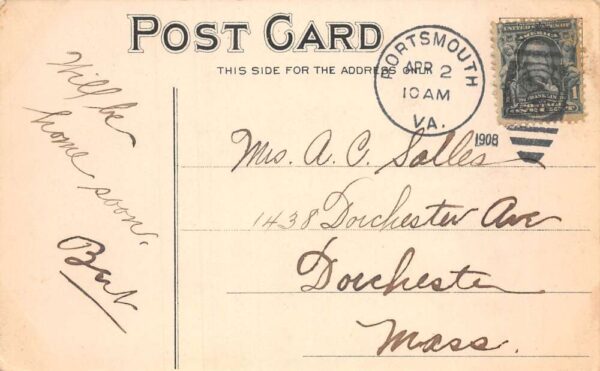 POST CARD
THIS SIDE FOR THE ADDRESS ONLY
PORTSMOUTH
APR 2
10 AM
VA.
1908
Will be
home soon.
Bert
Mrs. A. C. Salles
1438 Dorchester Ave
Dorchester
Mass.